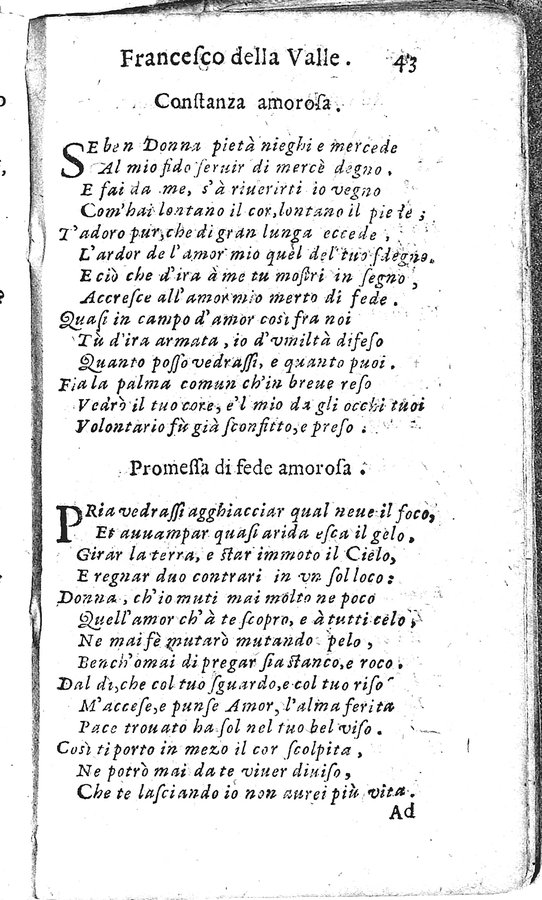 Francesco della Valle. 43
Constanza amorosa.
SE ben Donna pietà nieghi e mercede
Al mio fido seruir di mercè degno.
E fai da me, s'à riuerirti io vegno
Com'hai lontano il cor, lontano il piede;
T'adoro pur, che di gran lunga eccede,
L'ardor de l'amor mio quel del tuo sdegno.
E ciò che d'ira à me tu mostri in segno,
Accresce all'amor mio merto di fede.
Quasi in campo d'amor così fra noi
Tù d'ira armata, io d'vmiltà difeso
Quanto posso vedrassi, e quanto puoi.
Fia la palma comun ch'in breue reso
Vedrò il tuo core, e'l mio da gli occhi tuoi
Volontario fù già sconfitto, e preso.
Promessa di fede amorosa.
PRia vedrassi agghiacciar qual neue il foco,
Et auuampar quasi arida esca il gelo.
Girar la terra, e star immoto il Cielo,
E regnar duo contrari in vn sol loco:
Donna, ch'io muti mai molto ne poco
Quell'amor ch'à te scopro, e à tutti celo,
Ne mai fè mutarò mutando pelo,
Bench'omai di pregar sia stanco, e roco.
Dal dì, che col tuo sguardo, e col tuo riso
M'accese, e punse Amor, l'alma ferita
Pace trouato ha sol nel tuo bel viso.
Così ti porto in mezo il cor scolpita,
Ne potrò mai da te viuer diuiso,
Che te lasciando io non aurei più vita.
Ad